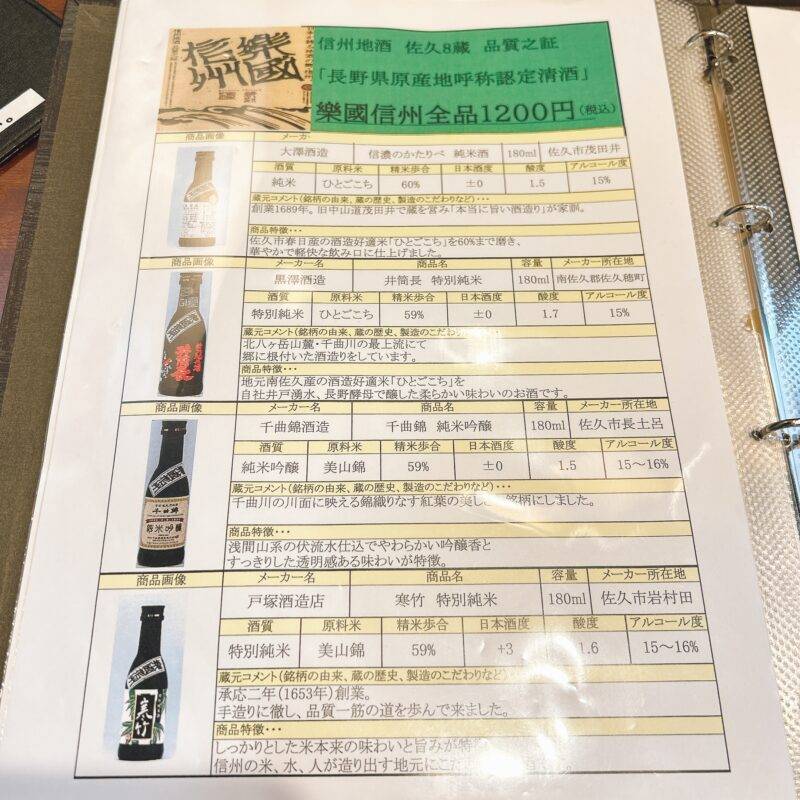 樂國
信州
信州地酒 佐久8蔵 品質之証
「長野県原産地呼称認定清酒」
樂國信州全品1200円(税込)
商品画像 メーカー
大澤酒造 信濃のかたりべ 純米酒 180ml 佐久市茂田井
酒質 原料米 精米歩合 日本酒度 酸度 アルコール度
純米 ひとごこち 60% ±0 1.5 15%
蔵元コメント(銘柄の由来、蔵の歴史、製造のこだわりなど)・・・
創業1689年。旧中山道茂田井で蔵を営み「本当に旨い酒造り」が家訓。
商品特徴・・・
佐久市春日産の酒造好適米「ひとごこち」を60%まで磨き、
華やかで軽快な飲み口に仕上げました。
商品画像 メーカー名 商品名 容量 メーカー所在地
黒澤酒造 井筒長 特別純米 180ml 南佐久郡佐久穂町
酒質 原料米 精米歩合 日本酒度 酸度 アルコール度
特別純米 ひとごこち 59% ±0 1.7 15%
蔵元コメント(銘柄の由来、蔵の歴史、製造のこだわりなど)・・・
北八ヶ岳山麓・千曲川の最上流にて
郷に根付いた酒造りをしています。
商品特徴・・・
地元南佐久産の酒造好適米「ひとごこち」を
自社井戸湧水、長野酵母で醸した柔らかい味わいのお酒です。
商品画像 メーカー名 商品名 容量 メーカー所在地
千曲錦酒造 千曲錦 純米吟醸 180ml 佐久市長土呂
酒質 原料米 精米歩合 日本酒度 酸度 アルコール度
純米吟醸 美山錦 59% ±0 1.5 15～16%
蔵元コメント(銘柄の由来、蔵の歴史、製造のこだわりなど)・・・
千曲川の川面に映える錦織りなす紅葉の美しさ 銘柄にしました。
商品特徴・・・
浅間山系の伏流水仕込でやわらかい吟醸香と
すっきりした透明感ある味わいが特徴。
千曲錦
純米吟醸
商品画像 メーカー名 商品名 容量 メーカー所在地
戸塚酒造店 寒竹 特別純米 180ml 佐久市岩村田
酒質 原料米 精米歩合 日本酒度 酸度 アルコール度
特別純米 美山錦 59% +3 1.6 15～16%
蔵元コメント(銘柄の由来、蔵の歴史、製造のこだわりなど)・・
承応二年(1653年)創業。
手造りに徹し、品質一筋の道を歩んで来ました。
商品特徴・・・
しっかりとした米本来の味わいと旨みが特
信州の米、水、人が造り出す地元にこだ
寒竹